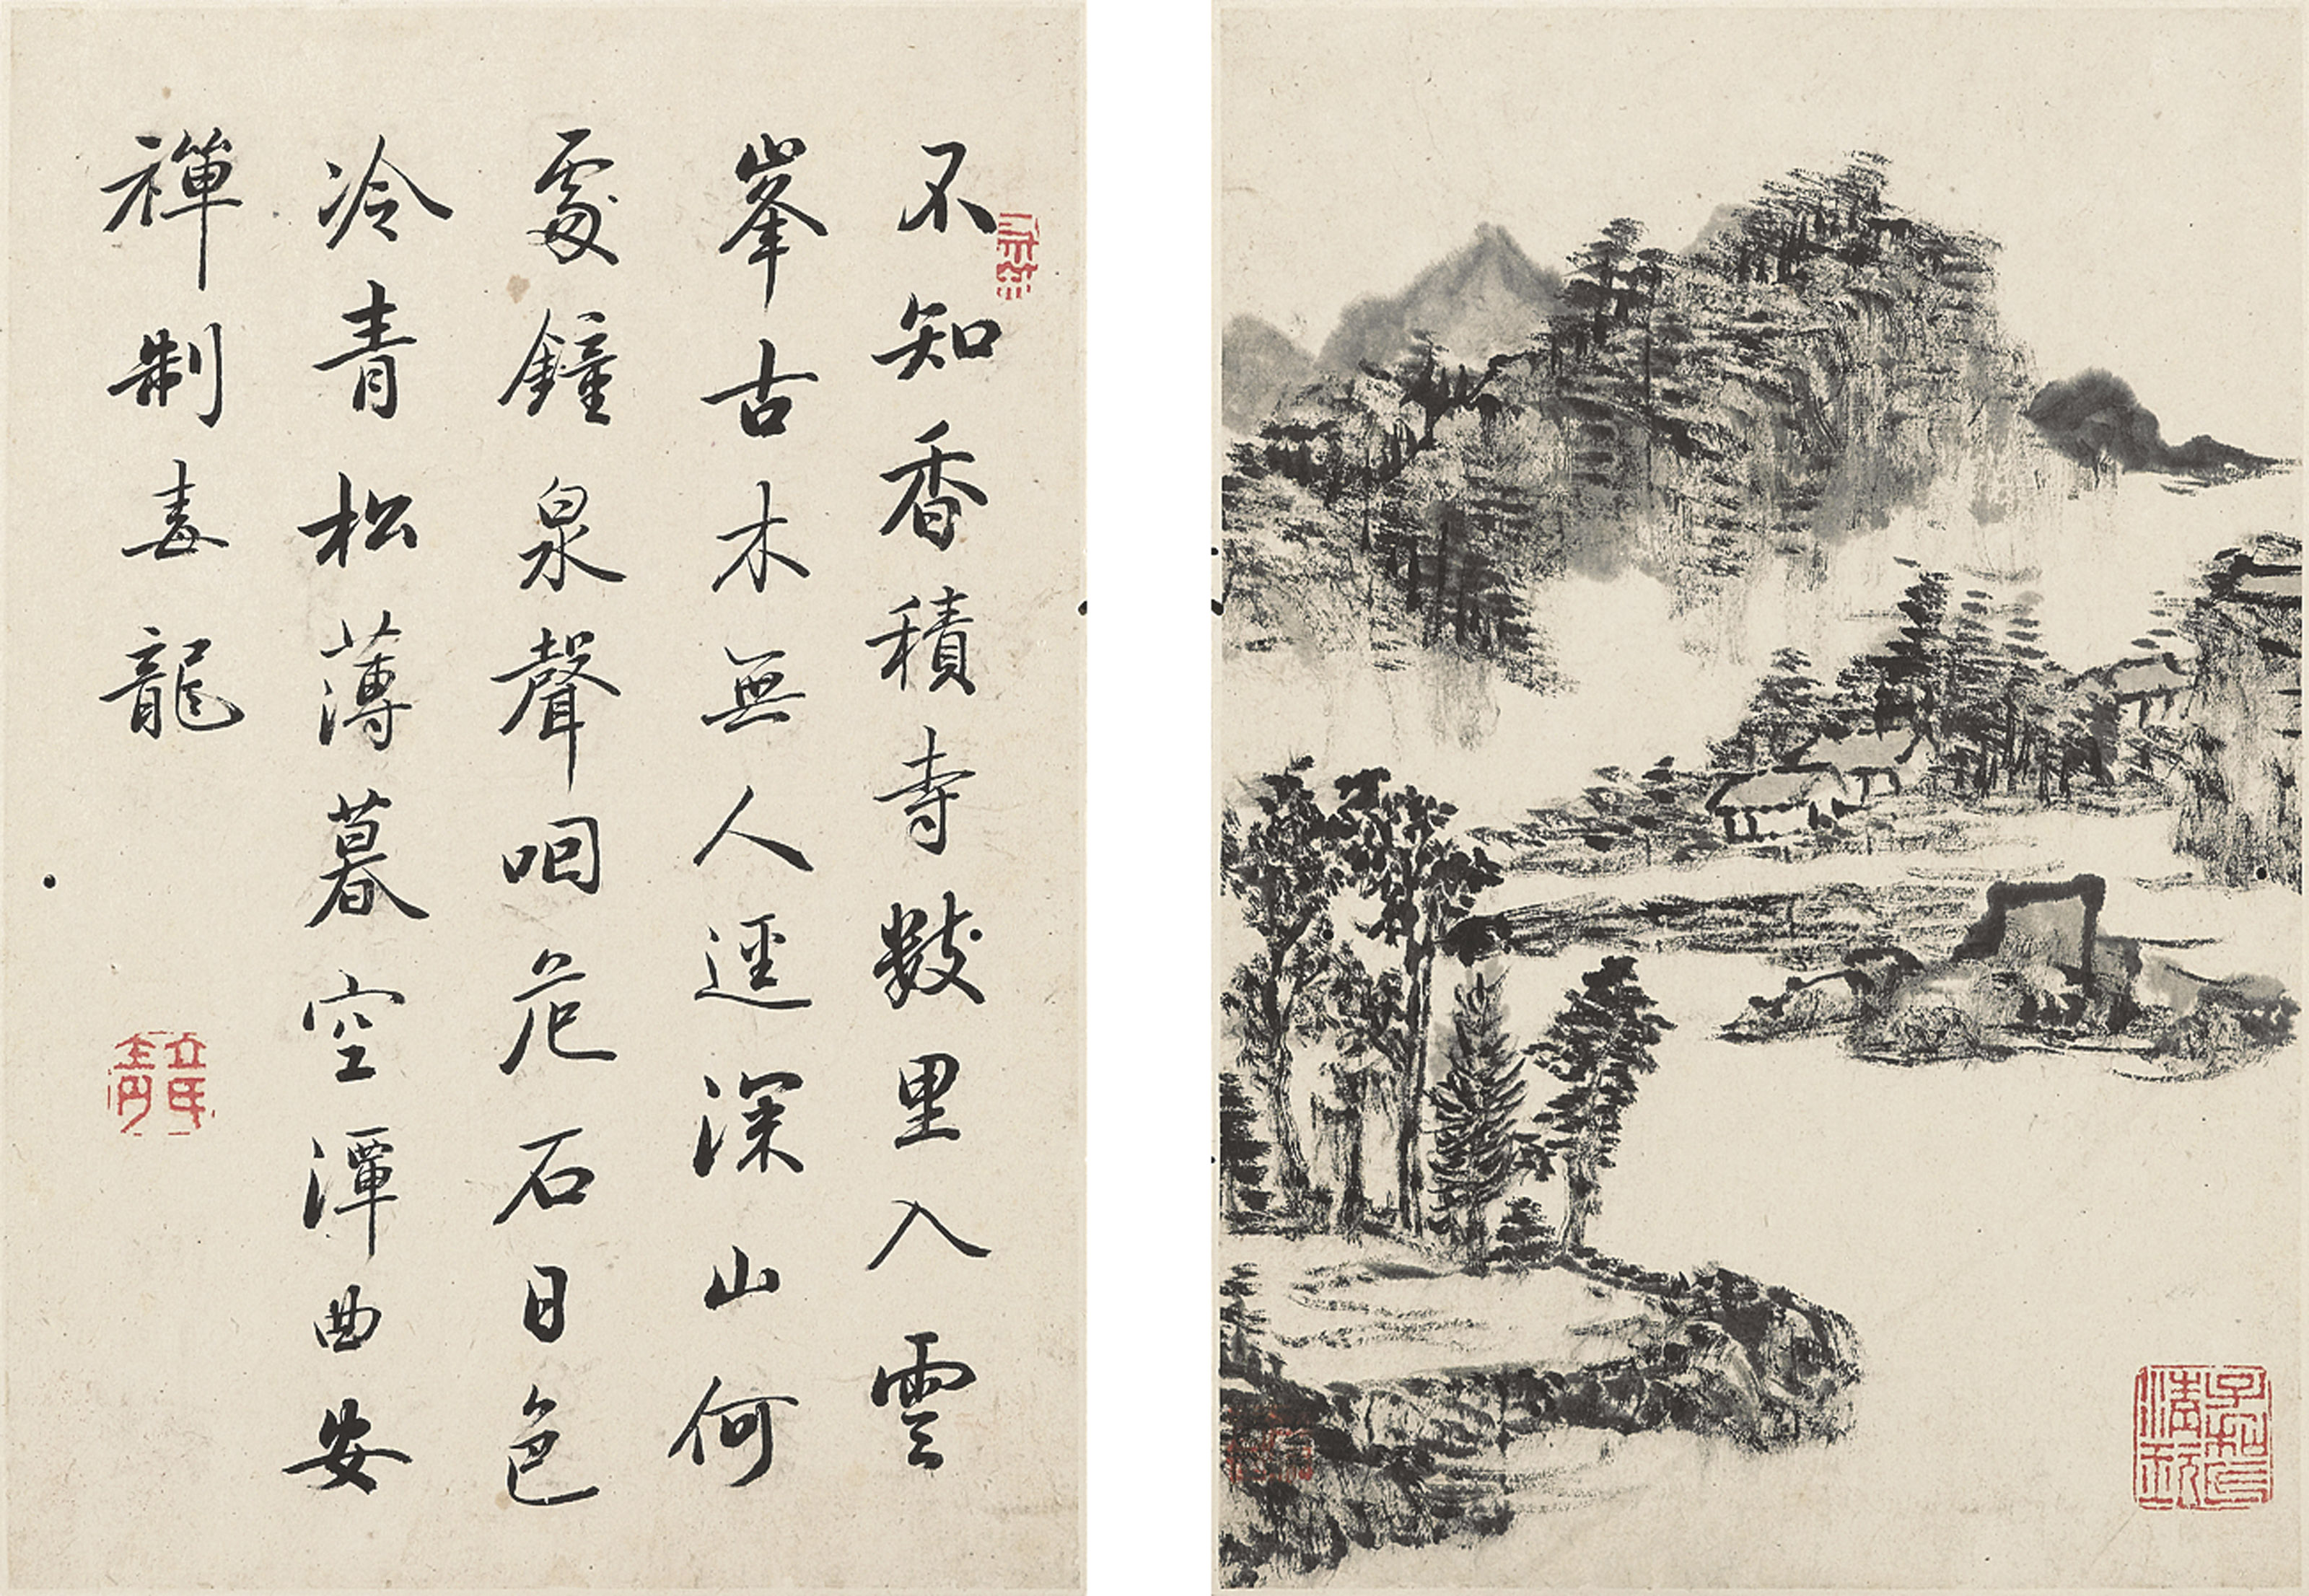 不知香積寺數里入雲
峯古木無人逕深山何
處鐘泉聲咽危石日色
冷青松薄暮空潭曲安
禪制毒龍